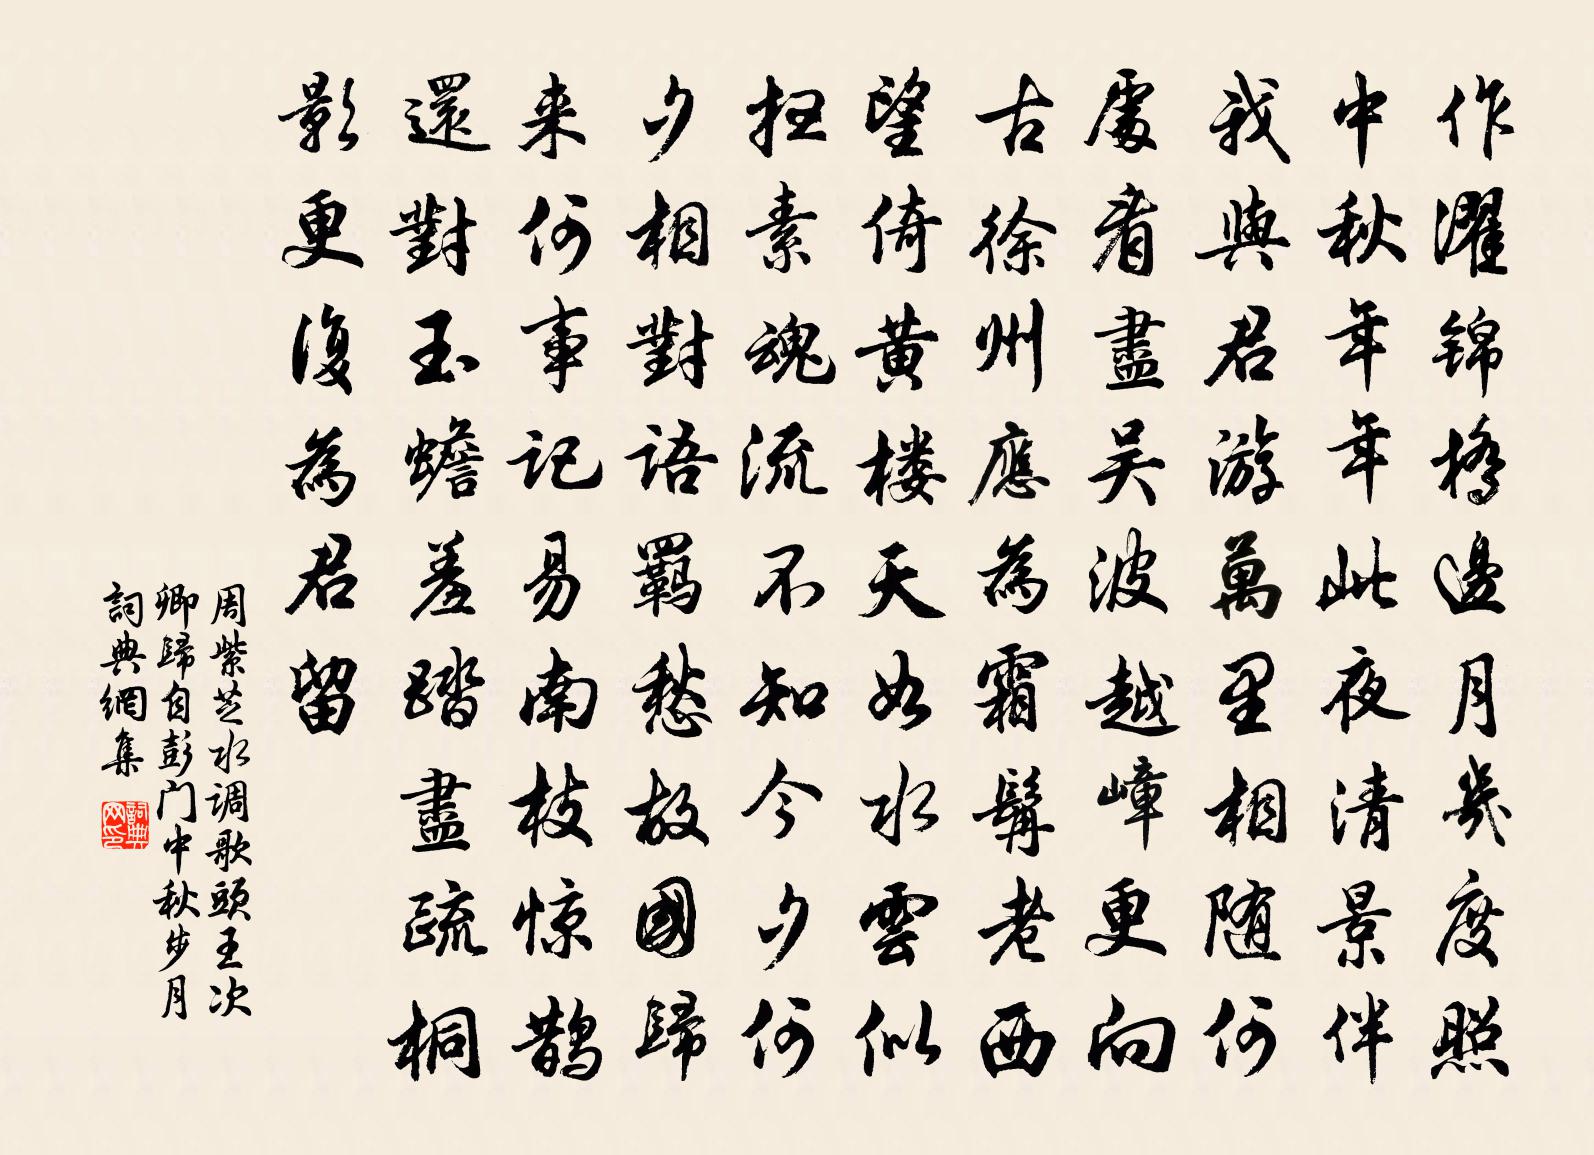 作濯锦橋邊月幾度照
中秋年年此夜清景伴
我與君游萬里相随何
處看盡吴波越嶂更向
古徐州應為霜鬢老西
望倚黄楼天如水雲似
扫素魂流不知今夕何
夕相對語羁愁故國歸
来何事記易南枝惊鹊
還對玉蟾羞踏盡疏桐
影更復為君留
周紫芝水调歌頭王次
卿歸自彭门中秋步月
詞典網集
詞典
网印